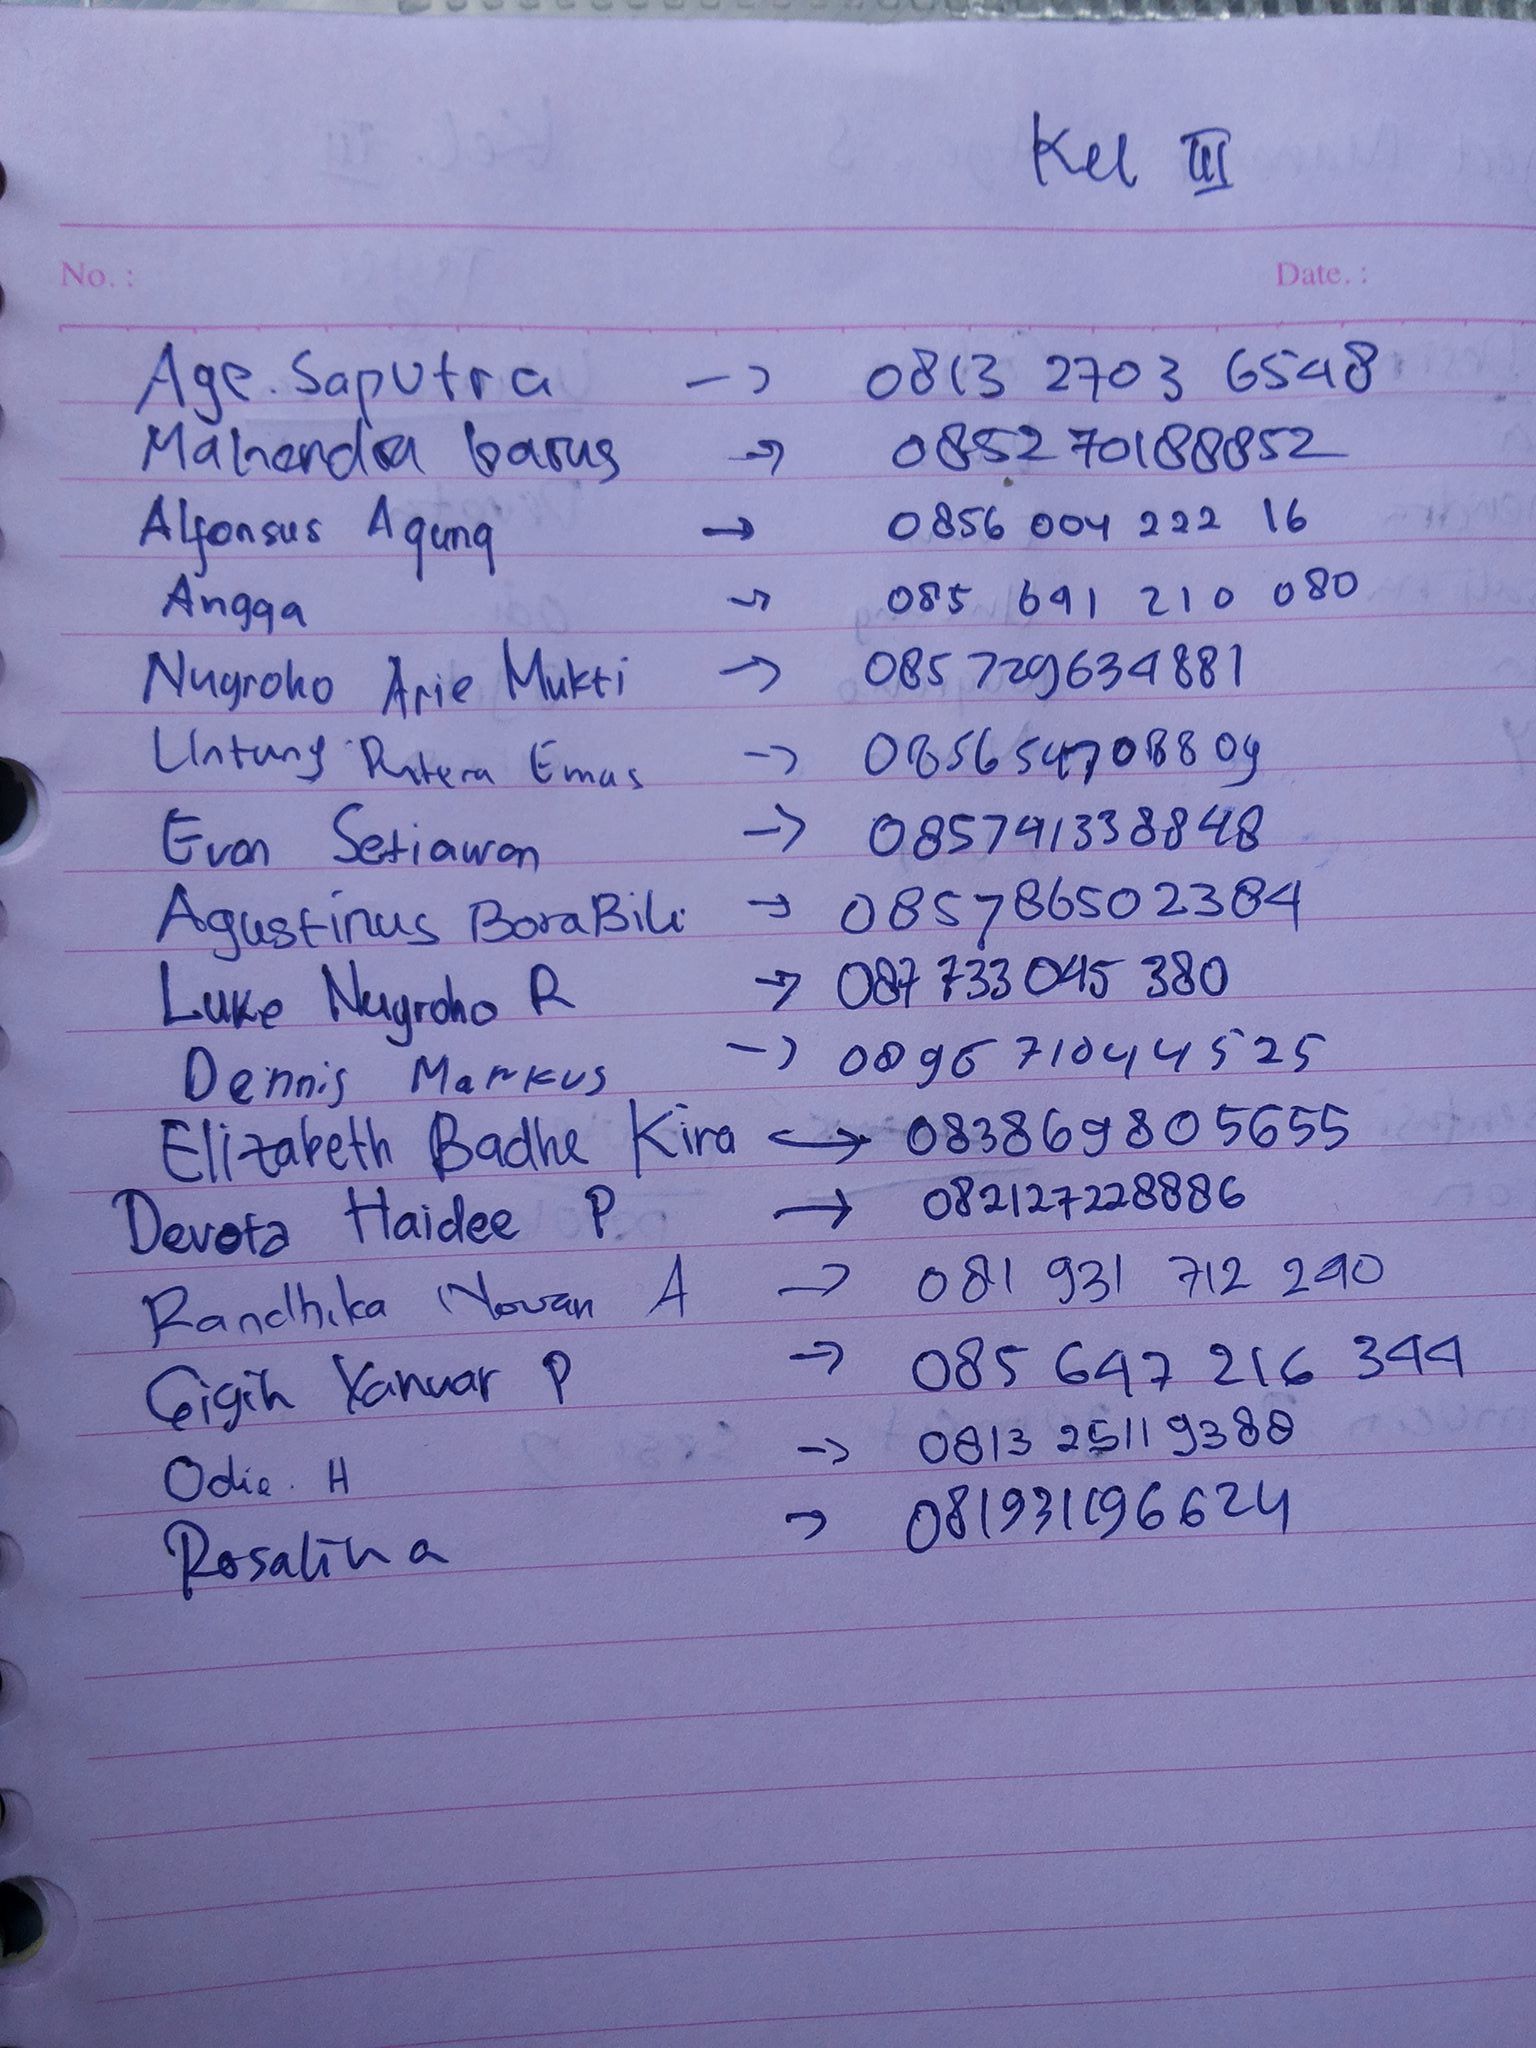 Kel III
No. : Date. :
Age. Saputra -> 0813 2703 6548
Mahendra barus -> 0852 70188852
Alfonsus Agung -> 0856 004 222 16
Angga -> 085 691 210 080
Nugroho Arie Mukti -> 085729634881
Untung Putera Emas -> 085654708809
Evan Setiawan -> 085741338848
Agustinus Bora Bili -> 085786502384
Luke Nugroho R -> 087 733 045 380
Dennis Markus -> 0896 71044525
Elizabeth Badhe Kira -> 083869805655
Devota Haidee P -> 082127228886
Randhika Novan A -> 081 931 712 290
Gigih Yanuar P -> 085 647 216 344
Odie. H -> 0813 25119388
Rosalina -> 081931196624